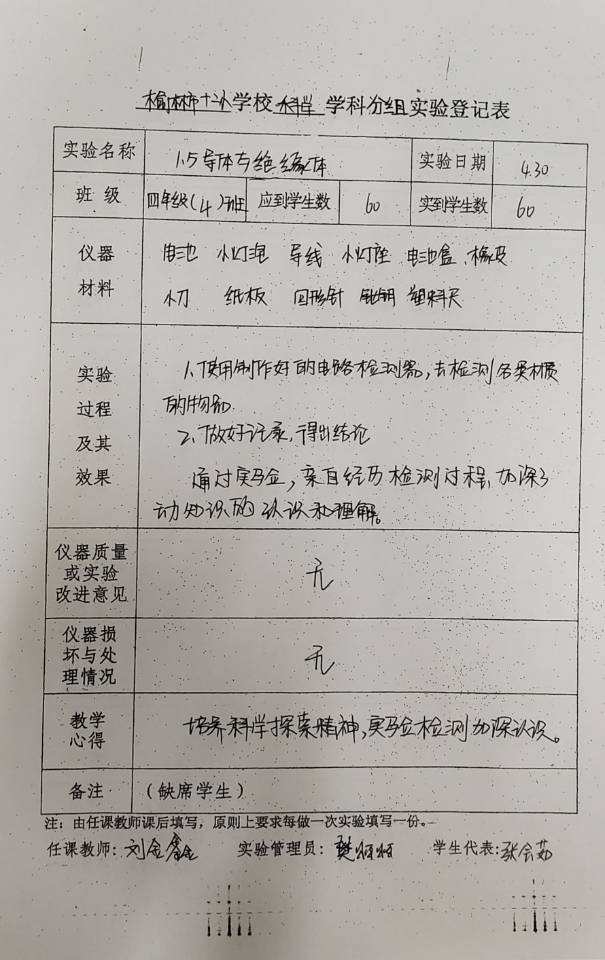 榆林市十二小学校 科学 学科分组实验登记表
实验名称 1.5导体与绝缘体 实验日期 4.30
班 级 四年级(4)班 应到学生数 60 实到学生数 60
仪器 电池 小灯泡 导线 小灯座 电池盒、橡皮
材料 小刀 纸板 回形针 钥钥 塑料尺
实验 1、使用制作好的电路检测器,去检测各类材质
过程 的物品
及其 2、做好记录,得出结论
效果 通过实验,亲自经历检测过程,加深了
动知识的认识和理解。
仪器质量
或实验 无
改进意见
仪器损
坏与处 无
理情况
教学 培养科学探索精神,实验检测加深认识。
心得
备注 (缺席学生)
注:由任课教师课后填写,原则上要求每做一次实验填写一份。
任课教师:刘金鑫 实验管理员:樊 学生代表:张会茹